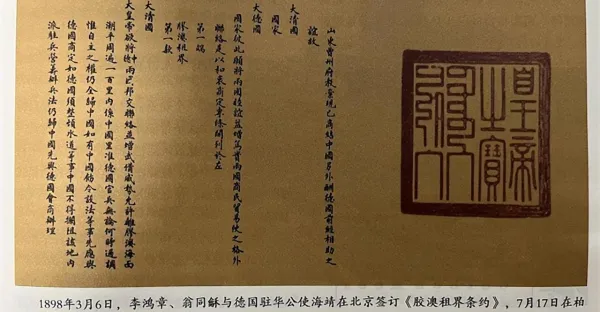 山東曹州府教案現已商結中國另外酬德國前經相助之
誼故
大清國
國家
大德國
國家彼此願將兩國睦誼益增篤實兩國商民貿易使之格外
聯絡是以和衷商定專條開列於左
第一端
膠澳租界
第一款
大清國
大皇帝欲將中德兩國邦交聯絡並增武備威勢允許離膠澳海面
潮平周遍一百里內係中國里准德國官兵無論何時過調
惟自主之權仍全歸中國如有中國飭令設法等事先應與
德國商定如德國須整頓水道等事中國不得攔阻該地內
派駐兵營籌辦兵法仍歸中國先與德國會商辦理
皇帝之寶
1898年3月6日，李鸿章、翁同龢与德国驻华公使海靖在北京签订《胶澳租界条约》，7月17日在柏